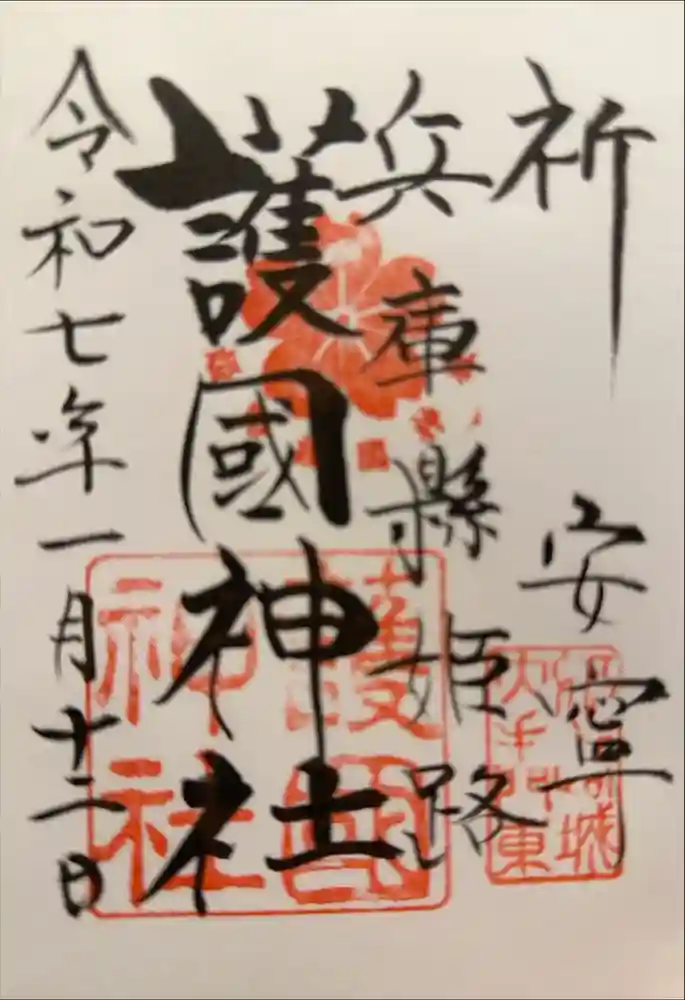 祈 安寧
兵庫縣姫路
護國神社
令和七年一月十二日
護國神社